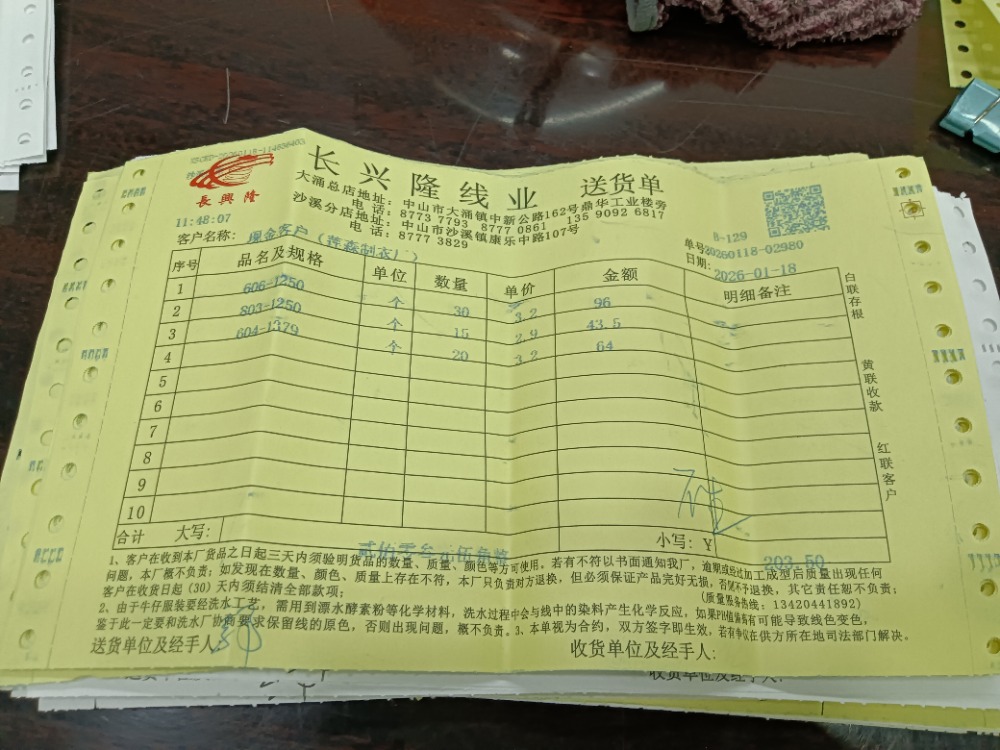 20260118-114636403
長興隆
长兴隆线业 送货单
大涌总店地址：中山市大涌镇中新公路162号鼎华工业楼旁
电话：8773 7793 8777 0861 135 9092 6817
沙溪分店地址：中山市沙溪镇康乐中路107号
电话：8777 3829
11:48:07
B-129
客户名称：现金客户（莲森制衣厂）
单号20260118-02980
日期：2026-01-18
序号 品名及规格 单位 数量 单价 金额 明细备注
1 606-1250 个 30 3.2 96
2 803-1250 个 15 2.9 43.5
3 604-1379 个 20 3.2 64
4
5
6
7
8
9
10
白联存根
黄联收款
红联客户
合计 大写：贰佰零叁元伍角整 小写：Y 203.50
1、客户在收到本厂货品之日起三天内须验明货品的数量、质量、颜色等方可使用，若有不符以书面通知我厂，逾期或经过加工成型后质量出现任何
问题，本厂概不负责；如发现在数量、颜色、质量上存在不符，本厂只负责对方退换，但必须保证产品完好无损，否则不予退换，其它责任恕不负责；
客户在收货日起（30）天内须结清全部款项；
(质量服务热线：13420441892)
2、由于牛仔服装要经洗水工艺，需用到漂水酵素粉等化学材料，洗水过程中会与线中的染料产生化学反应，如果PH值偏高有可能导致线色变色，
鉴于此一定要和洗水厂协商要求保留线的原色，否则出现问题，概不负责。3、本单视为合约，双方签字即生效，若有争议在供方所在地司法部门解决。
送货单位及经手人：
收货单位及经手人：
收货单位及经手人：